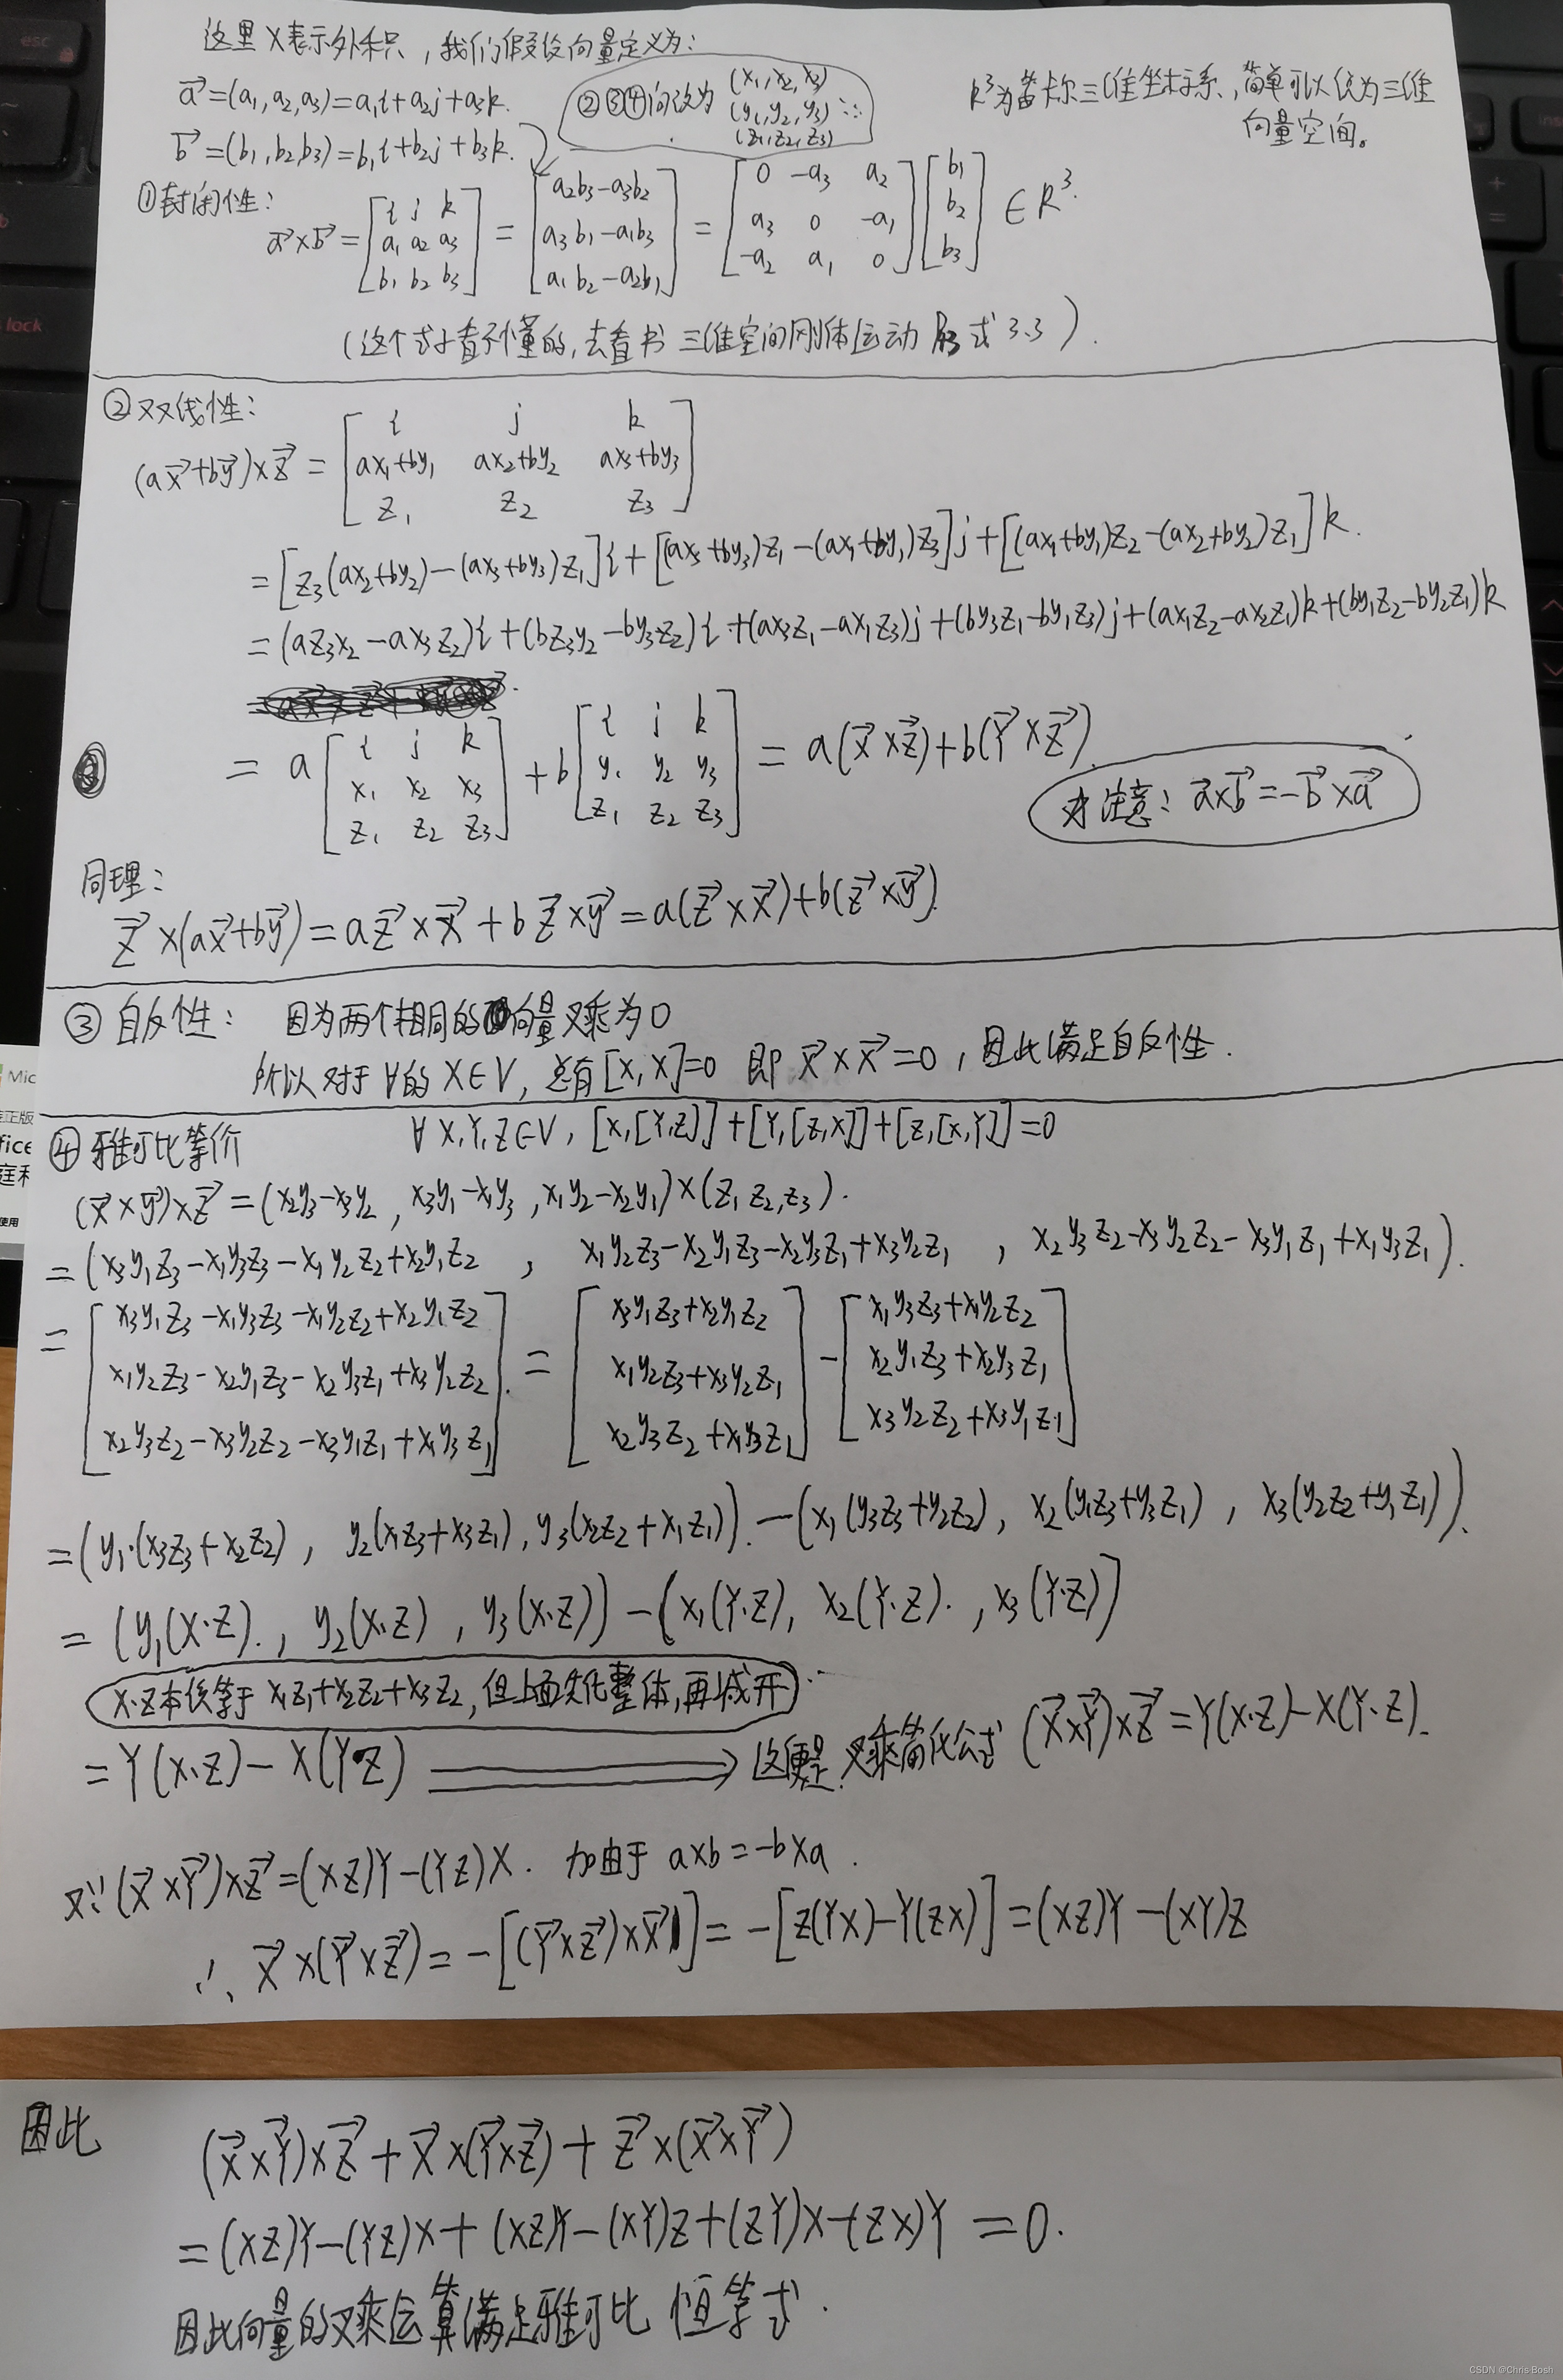 这里×表示外积,我们假设向量定义为:
a⃗=(a₁,a₂,a₃)=a₁i+a₂j+a₃k.
b⃗=(b₁,b₂,b₃)=b₁i+b₂j+b₃k.
②③④向改为 (x₁,x₂,x₃)
(y₁,y₂,y₃)
(z₁,z₂,z₃)
R³为笛卡尔三维坐标系,简单可以认为三维
向量空间。
①封闭性:
a⃗×b⃗=[i j k; a₁ a₂ a₃; b₁ b₂ b₃]=[a₂b₃-a₃b₂; a₃b₁-a₁b₃; a₁b₂-a₂b₁]=[0 -a₃ a₂; a₃ 0 -a₁; -a₂ a₁ 0][b₁; b₂; b₃]∈R³.
(这个式子看不懂的,去看书 三维空间刚体运动 式3.3).
②双线性:
(ax⃗+by⃗)×z⃗=[i j k; ax₁+by₁ ax₂+by₂ ax₃+by₃; z₁ z₂ z₃]
=[z₃(ax₂+by₂)-(ax₃+by₃)z₁]i+[(ax₃+by₃)z₁-(ax₁+by₁)z₃]j+[(ax₁+by₁)z₂-(ax₂+by₂)z₁]k.
=(az₃x₂-ax₃z₂)i+(bz₃y₂-by₃z₂)i+(ax₃z₁-ax₁z₃)j+(by₃z₁-by₁z₃)j+(ax₁z₂-ax₂z₁)k+(by₁z₂-by₂z₁)k
=a[i j k; x₁ x₂ x₃; z₁ z₂ z₃]+b[i j k; y₁ y₂ y₃; z₁ z₂ z₃]=a(x⃗×z⃗)+b(Y⃗×z⃗).
注意: a⃗×b⃗=-b⃗×a⃗
同理:
z⃗×(ax⃗+by⃗)=az⃗×x⃗+bz⃗×y⃗=a(z⃗×x⃗)+b(z⃗×y⃗).
③自反性: 因为两个相同的向量叉乘为0
所以对于∀的X∈V,总有[X,X]=0 即 X⃗×X⃗=0,因此满足自反性.
④雅可比等价 ∀X,Y,Z∈V,[X,[Y,Z]]+[Y,[Z,X]]+[Z,[X,Y]]=0
(x⃗×y⃗)×z⃗=(x₂y₃-x₃y₂,x₃y₁-x₁y₃,x₁y₂-x₂y₁)×(z₁,z₂,z₃).
=(x₃y₁z₃-x₁y₃z₃-x₁y₂z₂+x₂y₁z₂, x₁y₂z₃-x₂y₁z₃-x₂y₃z₁+x₃y₂z₁, x₂y₃z₂-x₃y₂z₂-x₃y₁z₁+x₁y₃z₁).
=[x₃y₁z₃-x₁y₃z₃-x₁y₂z₂+x₂y₁z₂; x₁y₂z₃-x₂y₁z₃-x₂y₃z₁+x₃y₂z₂; x₂y₃z₂-x₃y₂z₂-x₃y₁z₁+x₁y₃z₁]=[x₃y₁z₃+x₂y₁z₂; x₁y₂z₃+x₃y₂z₁; x₂y₃z₂+x₁y₃z₁]-[x₁y₃z₃+x₁y₂z₂; x₂y₁z₃+x₂y₃z₁; x₃y₂z₂+x₃y₁z₁]
=(y₁·(x₃z₃+x₂z₂), y₂(x₁z₃+x₃z₁),y₃(x₂z₂+x₁z₁)).-(x₁(y₃z₃+y₂z₂), x₂(y₁z₃+y₃z₁), x₃(y₂z₂+y₁z₁)).
=(y₁(X·Z)., y₂(X·Z), y₃(X·Z))-(x₁(Y·Z), x₂(Y·Z)., x₃(Y·Z))
X·Z本该等于x₁z₁+x₂z₂+x₃z₂,但上面先化整体,再减开
=Y(X·Z)-X(Y·Z) ⟹ 这便是叉乘简化公式 (X⃗×Y⃗)×Z⃗=Y(X·Z)-X(Y·Z).
又∵(X⃗×Y⃗)×Z⃗=(XZ)Y-(YZ)X. 加由于 a×b=-b×a.
∴X⃗×(Y⃗×Z⃗)=-[(Y⃗×Z⃗)×X⃗]=-[Z(YX)-Y(ZX)]=(XZ)Y-(XY)Z
因此 (X⃗×Y⃗)×Z⃗+X⃗×(Y⃗×Z⃗)+Z⃗×(X⃗×Y⃗)
=(XZ)Y-(YZ)X+(XZ)Y-(XY)Z+(ZY)X-(ZX)Y=0.
因此向量的叉乘运算满足雅可比恒等式.
esc
lock
Mic
正版
fice
使用
CSDN @Chris·Bosh